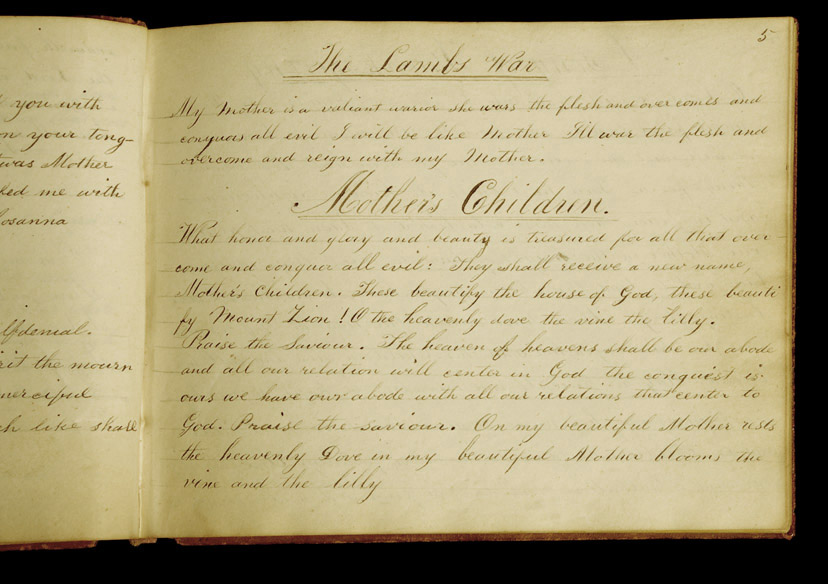 you with
on your tong-
was Mother
ked me with
Hosanna
lfdenial.
rit the mourn
merciful
ch like shall
5
The Lambs War
My Mother is a valiant warior she wars the flesh and over comes and
conquors all evil I will be like Mother I'll war the flesh and
overcome and reign with my Mother.
Mother's Children.
What honor and glory and beauty is treasured for all that over-
come and conquor all evil: They shall receive a new name,
Mother's Children. These beautify the house of God, these beauti
fy Mount Zion! O the heavenly dove the vine the lilly.
Praise the Saviour. The heaven of heavens shall be our abode
and all our relation will center in God the conquest is
ours we have our abode with all our relations that center to
God. Praise the saviour. On my beautiful Mother rests
the heavenly Dove in my beautiful Mother blooms the
vine and the lilly